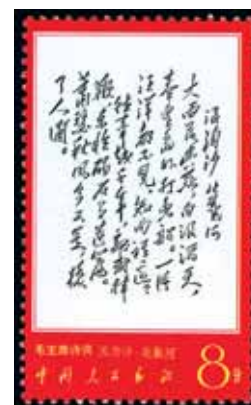 浪淘沙 北戴河
大雨落幽燕,白浪滔天,
秦皇岛外打鱼船。一片
汪洋都不见,知向谁边
往事越千年,魏武挥
鞭,东临碣石有遗篇。
萧瑟秋风今又是,换
了人间。
毛主席诗词 浪淘沙·北戴河
中国人民邮政 8分